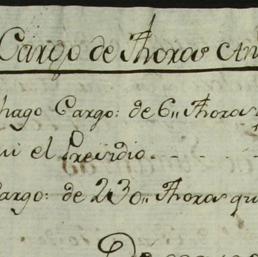 Cargo de Ahoras Can
hago Cargo: de 6,, Ahoras
ui el Presidio
argo: de 230,, Ahoras qu